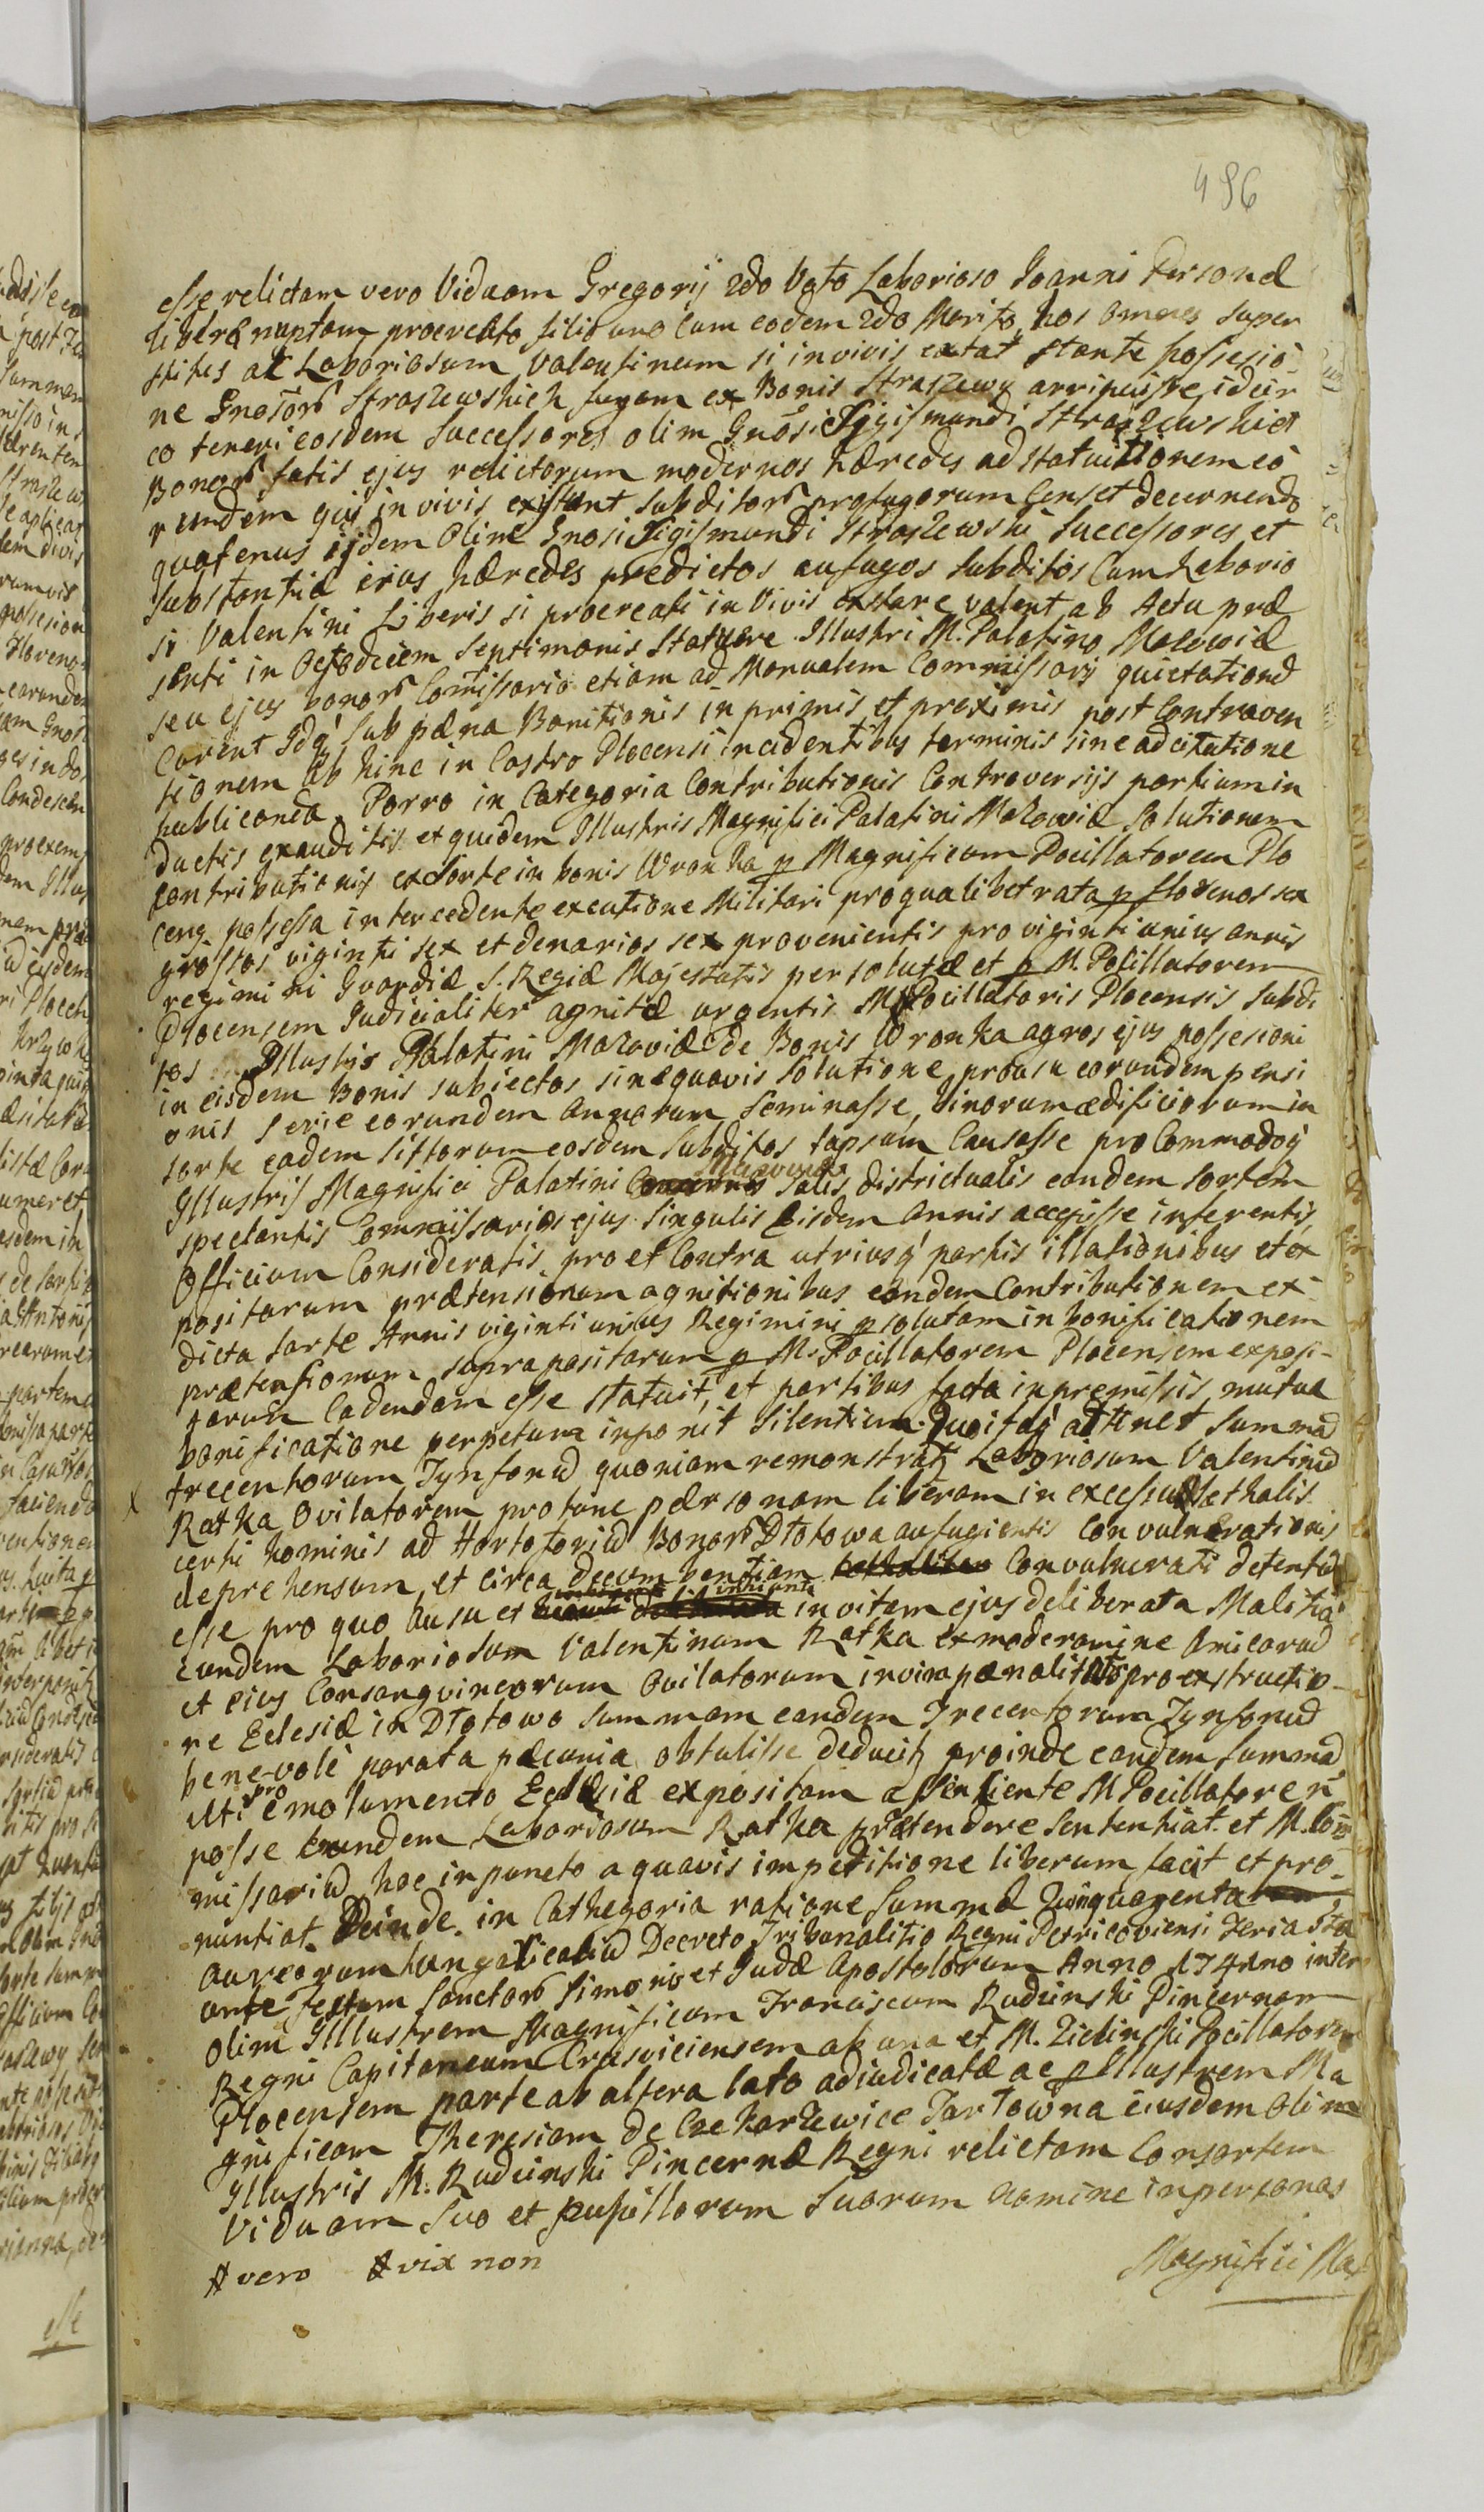 496
esse relictam vero Viduam Gregorij 2do Voto Laborioso Joanni Personæ
liberæ nuptam procreato filio uno cum eodem 2do Marito, hos omnes super
stites ac Laboriosum Valentinum si in vivis extat stante possesio
ne Gnosorũ Straszewskich fugam ex Bonis Straszewy arripuisse, idcir
co teneri eosdem Successores olim Gnosi Sigismundi Straszewski et
Bonorũ fatis ejus relictorum modernos hæredes ad statuitionem eo
rundem qui in vivis existant subditorũ profugorum Censet decernendo
quatenus ijdem Olim Gnosi Sigismundi Straszewski Successores et
substantiæ eius hæredes predictos aufugos subditos Cum Laborio
si Valentini Liberis si procreati in Vivis extare valent, ab Actu præ
senti in Octodecim septimanis statuere Illustri M. Palatino Mazowiæ
seu ejus bonorũ Comissario etiam ad Manualem Commissarij quietationẽ
Curent Idq' sub pæna Banitionis in primis et proximis post Contraven
tionem ab hinc in Castro Plocensi incidentibus terminis sine adcitatione
publicanda. Porro in Categoria Contributionis Controversijs partium in
ductis exauditis et quidem Illustris Magnifici Palatini Mazowiæ Solutionem
contributionis ex sorte in bonis Wronka p Magnificum Pocillatorem Plo
cens. possessa intercedente executione Militari pro qualibet rata p florenos sex
grossos viginti sex et denarios sex provenientis pro viginti unius annis
regimini Guardiæ S. Regiæ Majestatis persolutæ et p M. Pocillatorem
Plocensem Judicialiter agnitæ urgentis M Pocillatoris Plocensis Subdi
tos Illustris Palatini Mazoviæ De Bonis Wronka agros ejus possesioni
in eisdem Bonis subiectos sine quavis solutione, pro usu eorundem pensi
onis serie eorundem Annorum seminasse, binorum ædificiorum in
sorte eadem sittorum eosdem subditos lapsum Causasse pro Commodoq'
Illustris Magnifici Palatini Mazowiæ salis districtualis eandem sortem
spectantis Commissarios ejus singulis eisdem annis accepisse inferentis
Officium Consideratis pro et Contra utriusq' partis illationibus et ex
positarum prætensionum agnitionibus eandem Contributionem ex
dicta sorte Annis viginti unius Regimini p solutam in bonificationem
prætensionum supra positarum p M. Pocillatorem Plocensem exposi-
tarum Cadendam esse statuit, et partibus facta in premissis mutua
bonificatione perpetuum inponit silentium. Quo itaq' attinet Summã
trecentorum Tynfonũ quoniam remonstratz Laboriosum Valentinũ
x Ratka Ovilatorem pro tunc personam liberam in excessu Læthalis
certi hominis ad Hortosoriũ Bonorũ Dłotowa aufugientis Convulnerationis
deprehensum, et circa decumbentiam Convulnerati detentũ
esse pro quo ausu et inhiante in vitam ejus deliberata Malitia
eundem Laboriosum Valentinum Ratka ex moderamine Amicorũ
et eius Consanguineorum Ovilatorum in vim pænalitatis pro exstructio-
ne Eclesiæ in Dłotowo summam eandem Trecentorum Tynfonũ
benevole parata pæcunia obtulisse deducitz proinde eandem summã
uti pro emolumento Ecclesiæ expositam assentiente M Pocillatore ñ
posse eundem Laboriosum Ratka prætendere sententiat et M. Com
missariũ hoc in puncto a quavis impetitione liberum facit et pro-
nuntiat. Deinde in Cathegoria ratione Summæ Quinquagenta
Aureorum hungaricaliũ Decreto Tribunalitio Regni Petricoviensi Feria 5ta
ante Festum Sanctorũ Simonis et Judæ Apostolorum Anno 1741mo inter
olim Illustrem Magnificum Franciscum Rudzinski Pincernam
Regni Capitaneum Crusviciensem ab una et M. Zielinski Pocillatorem
Plocensem parte ab altera lato adiudicatæ ac p Illustrem Ma
gnificam Theresiam de Czekarzewice Tarłowna eiusdem Olim
Illustris M. Rudzinski Pincernæ Regni relictam Consortem
Viduam Suo et Pupillorum Suorum nomine in personas
# vero # vix non
Magnifici Mar